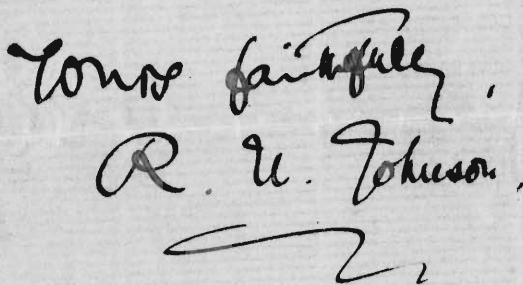 Yours faithfully,
R. U. Johnson.